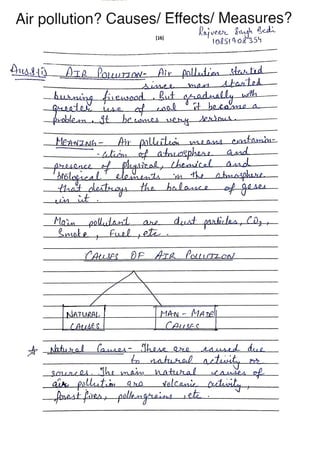 Air pollution? Causes/ Effects/ Measures?
Rajveer Singh Bedi
(16)
10851908354
Ans1(i) AIR POLLUTION- Air pollution started
since man started
burning firewood. But gradually with
greater use of coal it became a
problem. It becomes very serious.
MEANING- Air pollution means contamin-
-ation of atmosphere and
presence of Physical, Chemical and
biological elements in the atmosphere
that destroys the balance of gases
in it.
Main pollutant are dust particles, CO2,
Smoke, Fuel, etc.
CAUSES OF AIR POLLUTION
NATURAL CAUSES
MAN-MADE CAUSES
Natural Causes- These are caused due
to natural activity or
sources. The main natural causes of
air pollution are volcanic activity,
forest fires, pollengrains, etc.